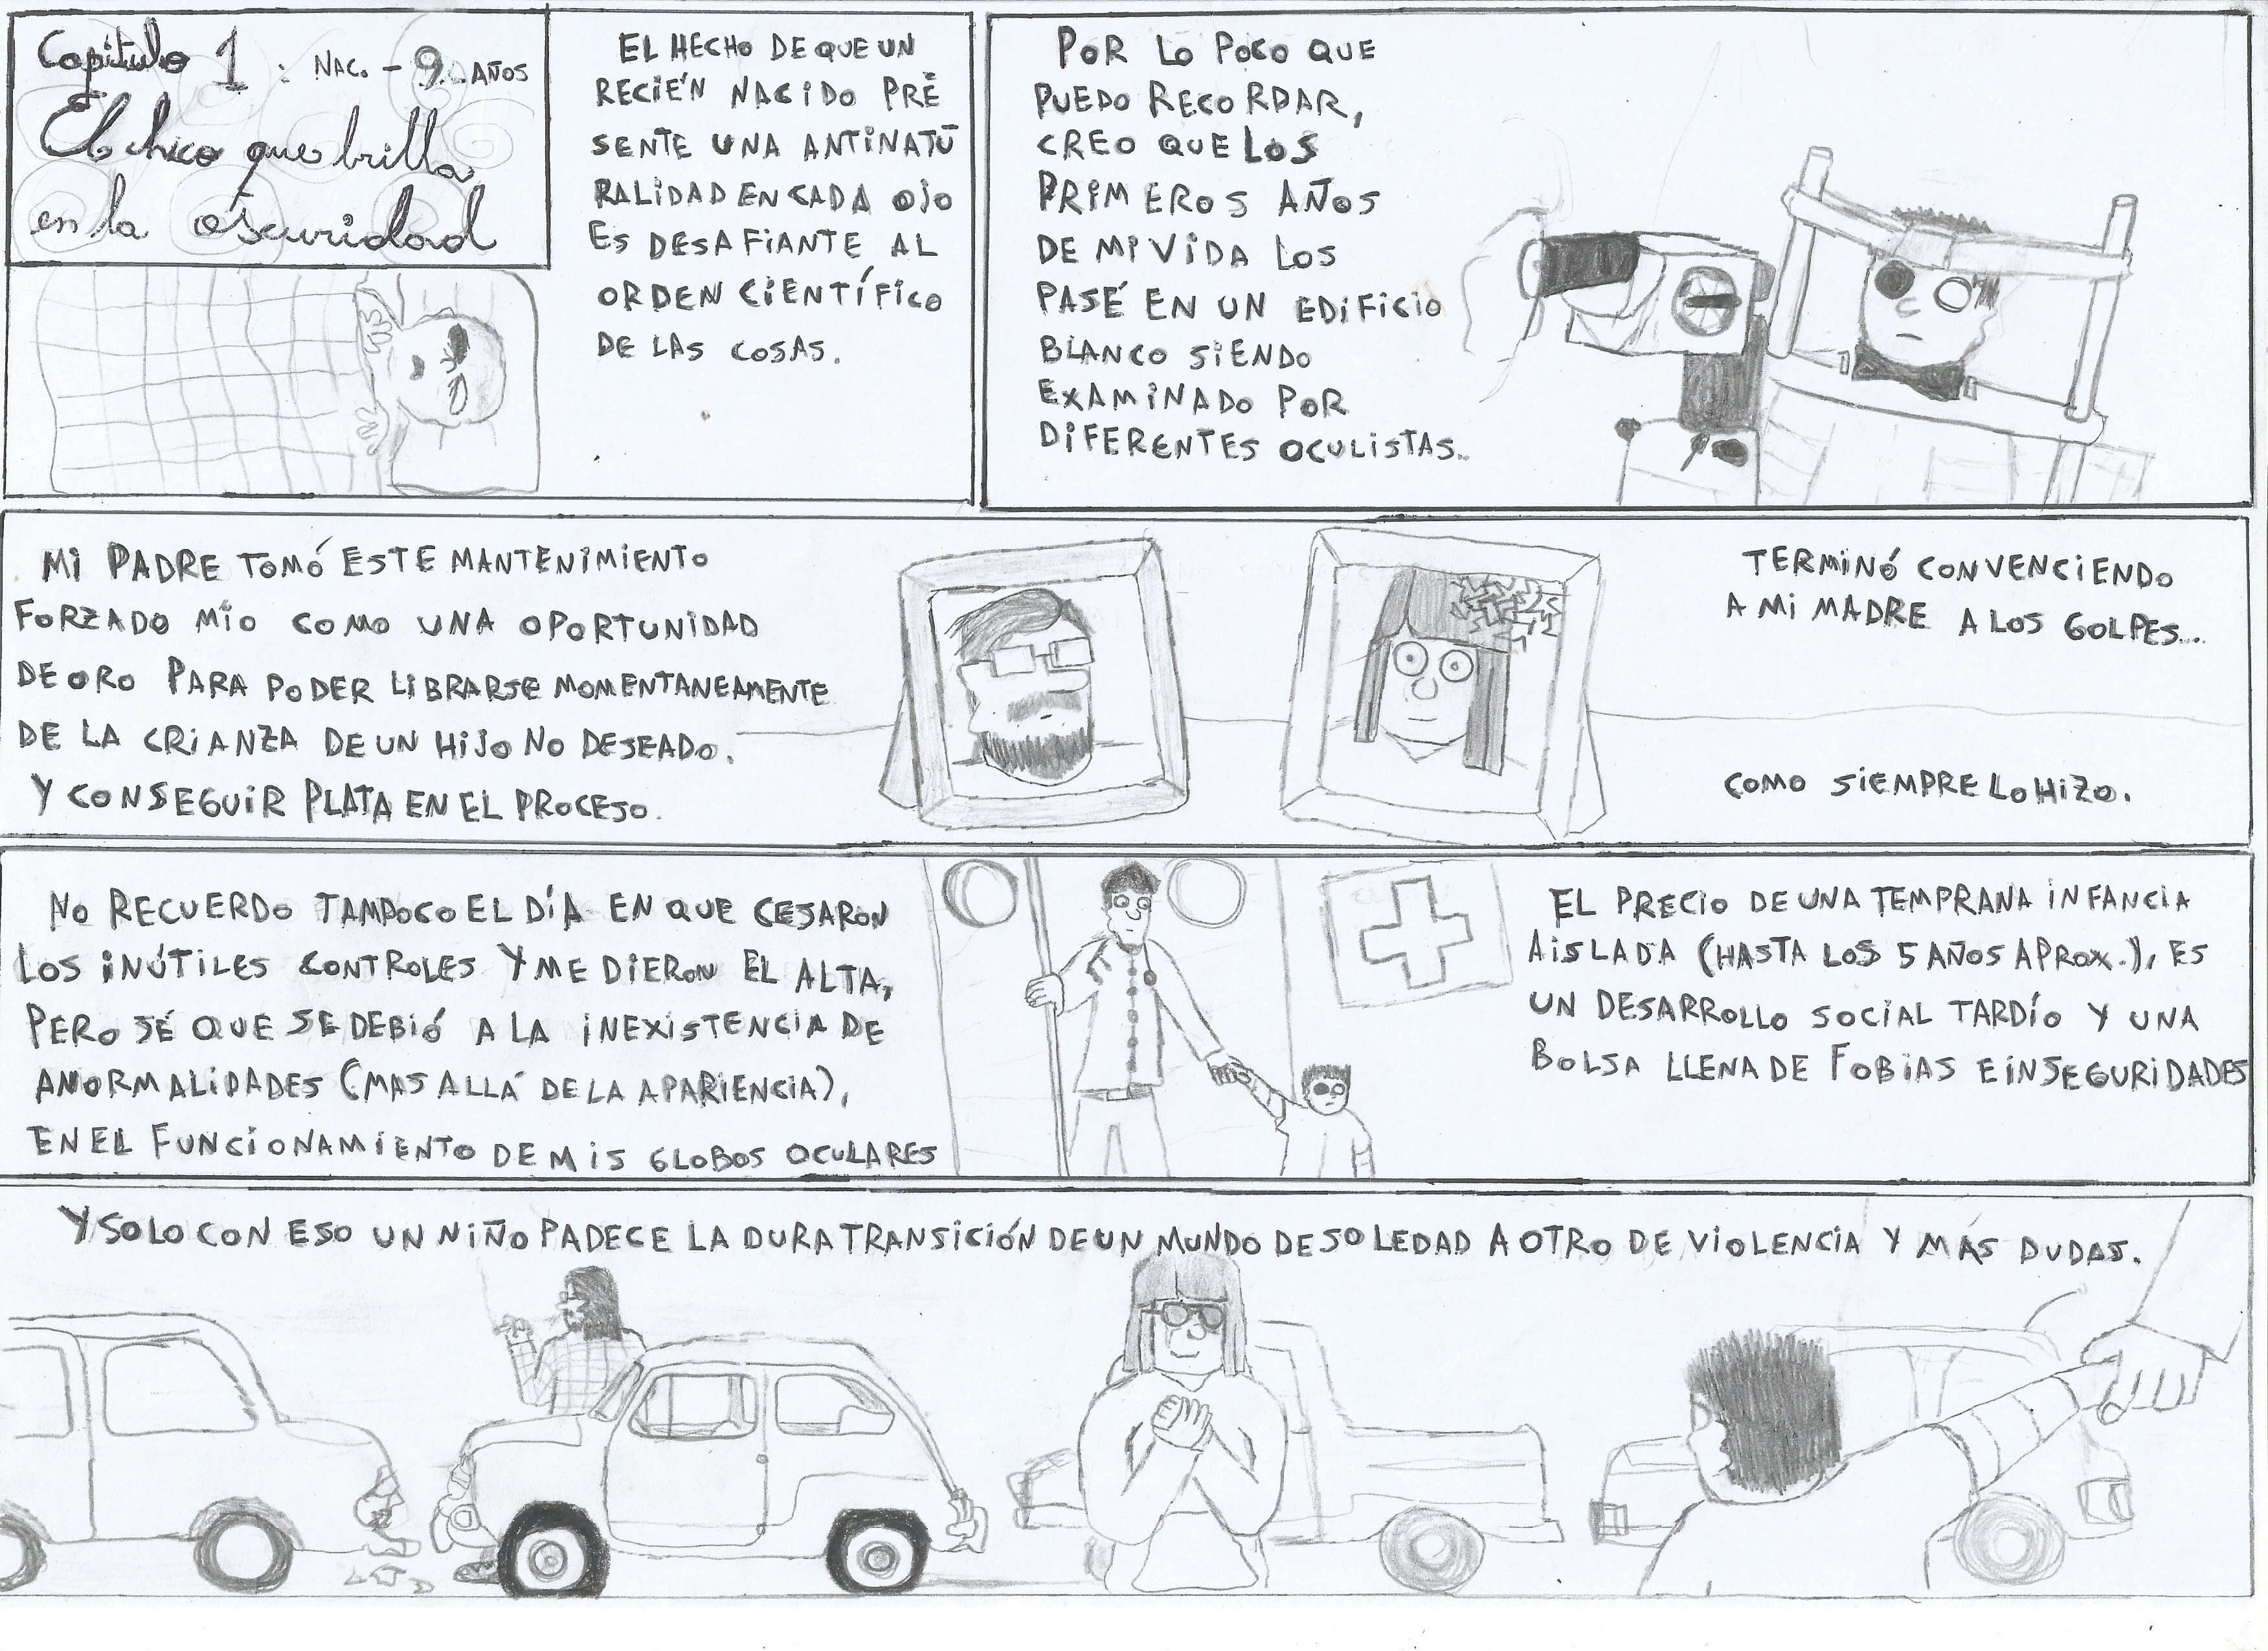 Capítulo 1 : NAC. - 9 AÑOS
El chico que brilla
en la oscuridad
EL HECHO DE QUE UN
RECIÉN NACIDO PRE
SENTE UNA ANTINATU
RALIDAD EN CADA OJO
ES DESAFIANTE AL
ORDEN CIENTÍFICO
DE LAS COSAS.
POR LO POCO QUE
PUEDO RECORDAR,
CREO QUE LOS
PRIMEROS AÑOS
DE MI VIDA LOS
PASÉ EN UN EDIFICIO
BLANCO SIENDO
EXAMINADO POR
DIFERENTES OCULISTAS..
MI PADRE TOMÓ ESTE MANTENIMIENTO
FORZADO MÍO COMO UNA OPORTUNIDAD
DE ORO PARA PODER LIBRARSE MOMENTANEAMENTE
DE LA CRIANZA DE UN HIJO NO DESEADO.
Y CONSEGUIR PLATA EN EL PROCESO.
TERMINÓ CONVENCIENDO
A MI MADRE A LOS GOLPES...
COMO SIEMPRE LO HIZO.
NO RECUERDO TAMPOCO EL DÍA EN QUE CESARON
LOS INÚTILES CONTROLES Y ME DIERON EL ALTA,
PERO SÉ QUE SE DEBIÓ A LA INEXISTENCIA DE
ANORMALIDADES (MAS ALLÁ DE LA APARIENCIA),
EN EL FUNCIONAMIENTO DE MIS GLOBOS OCULARES
EL PRECIO DE UNA TEMPRANA INFANCIA
AISLADA (HASTA LOS 5 AÑOS APROX.), ES
UN DESARROLLO SOCIAL TARDÍO Y UNA
BOLSA LLENA DE FOBIAS E INSEGURIDADES
Y SOLO CON ESO UN NIÑO PADECE LA DURA TRANSICIÓN DE UN MUNDO DE SOLEDAD A OTRO DE VIOLENCIA Y MÁS DUDAS.